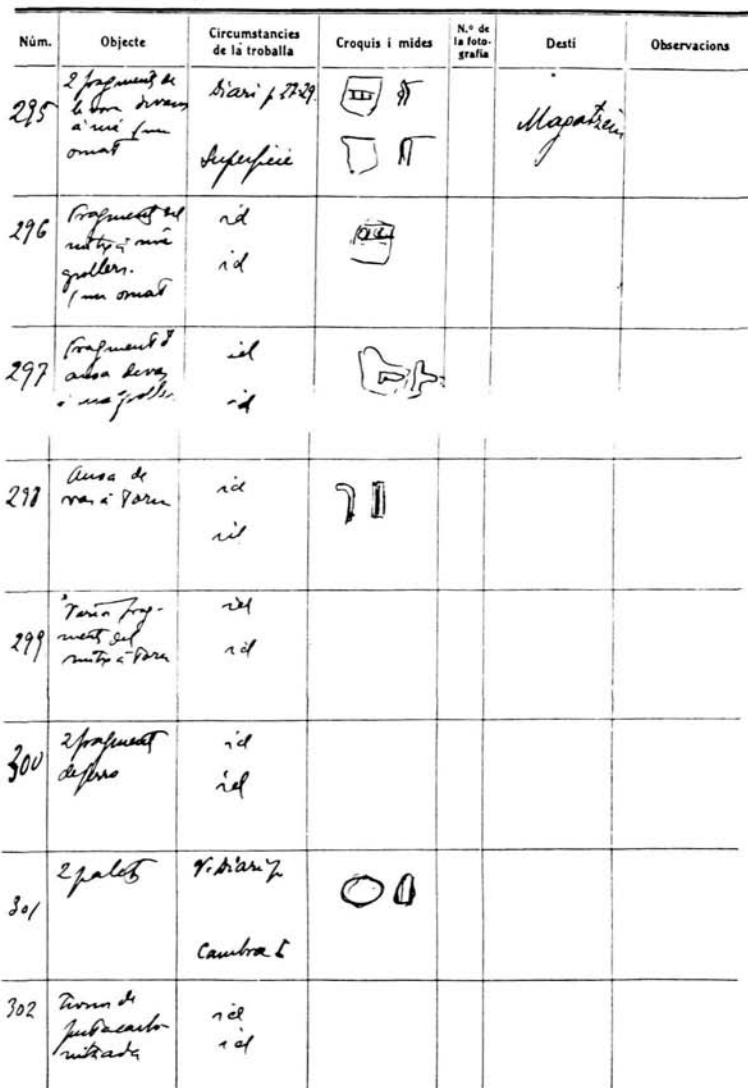 Núm. Objecte Circumstancies de la troballa Croquis i mides N.º de la foto-grafia Destí Observacions
295
2 fragments de
à mà (un
ornat
Diari p 27-29.
Superficie
Magatzem
296
Fragments del
mateix à mà
grollers.
(un ornat
id
id
297
Fragment d
ansa de vas
à mà groller
id
id
298
Ansa de
vas à torn
id
id
299
Varis frag-
ments del
mateix à torn
id
id
300
2 fragments
de ferro
id
id
301
2 palets
V. Diari p
Cambra I
302
de
fusta carbo-
nitzada
id
id